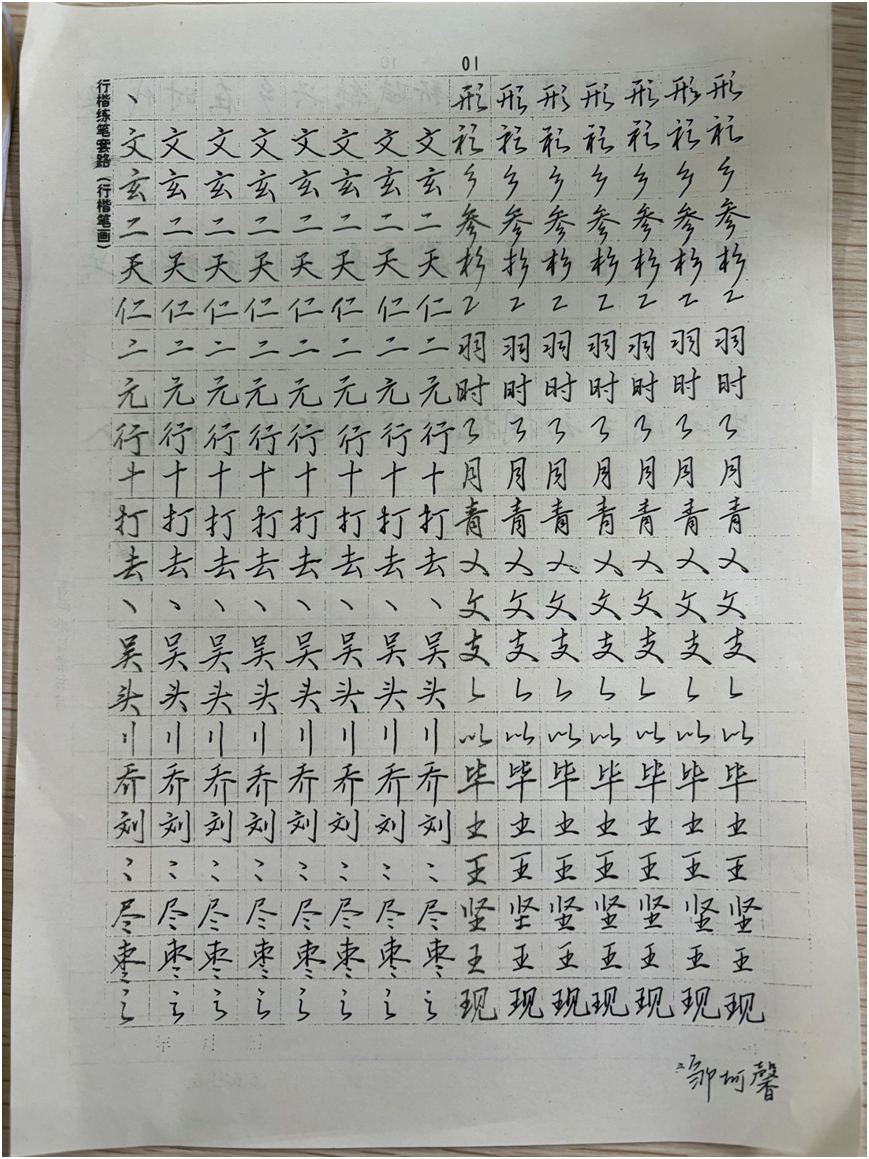 01
行楷练笔套路（行楷笔画）
丶 形 形 形 形 形 形 形
文 文 文 文 文 文 文 文 衫 衫 衫 衫 衫 衫 衫
玄 玄 玄 玄 玄 玄 玄 玄 乡 乡 乡 乡 乡 乡 乡
二 二 二 二 二 二 二 二 参 参 参 参 参 参 参
天 天 天 天 天 天 天 天 杉 杉 杉 杉 杉 杉 杉
仁 仁 仁 仁 仁 仁 仁 仁
二 二 二 二 二 二 二 二 羽 羽 羽 羽 羽 羽 羽
元 元 元 元 元 元 元 元 时 时 时 时 时 时 时
行 行 行 行 行 行 行 行
十 十 十 十 十 十 十 十 月 月 月 月 月 月 月
打 打 打 打 打 打 打 打 青 青 青 青 青 青 青
去 去 去 去 去 去 去 去 乂 乂 乂 乂 乂 乂 乂
丶 丶 丶 丶 丶 丶 丶 丶 文 文 文 文 文 文 文
吴 吴 吴 吴 吴 吴 吴 吴 支 支 支 支 支 支 支
头 头 头 头 头 头 头 头
刂 刂 刂 刂 刂 刂 刂 刂 以 以 以 以 以 以 以
乔 乔 乔 乔 乔 乔 乔 乔 毕 毕 毕 毕 毕 毕 毕
刘 刘 刘 刘 刘 刘 刘 刘
王 王 王 王 王 王 王
尽 尽 尽 尽 尽 尽 尽 尽 坚 坚 坚 坚 坚 坚 坚
枣 枣 枣 枣 枣 枣 枣 枣 王 王 王 王 王 王 王
现 现 现 现 现 现 现
邹珂馨